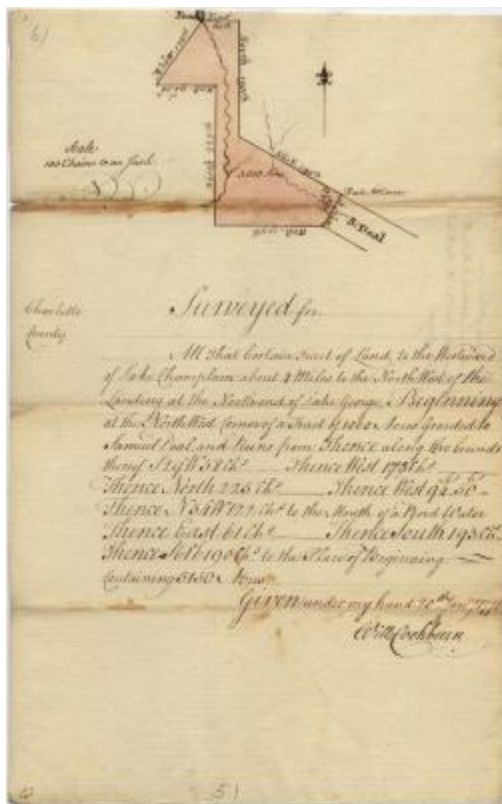 6)
Pond
South
Scale
100 Chains to an Inch
S. Peal
Charlotte
County
Surveyed for
All that Certain Tract of Land, to the Westward
of Lake Champlain about 4 Miles to the North West of the
Landing at the North end of Lake George, Beginning
at the North West Corner of a Tract of 1000 Acres Granted to
Samuel Peal and Runs from Thence along the bounds
thereof S 29 W 58 Chs Thence West 173 Chs
Thence North 225 Chs Thence West 94 50
Thence N 34 W 122 Chs to the Mouth of a Pond Water
Thence East 61 Chs Thence South 195 Chs
Thence 190 Chs to the Place of Beginning
Containing 5150 Acres
Given under my hand 20th
Will Cockburn
51